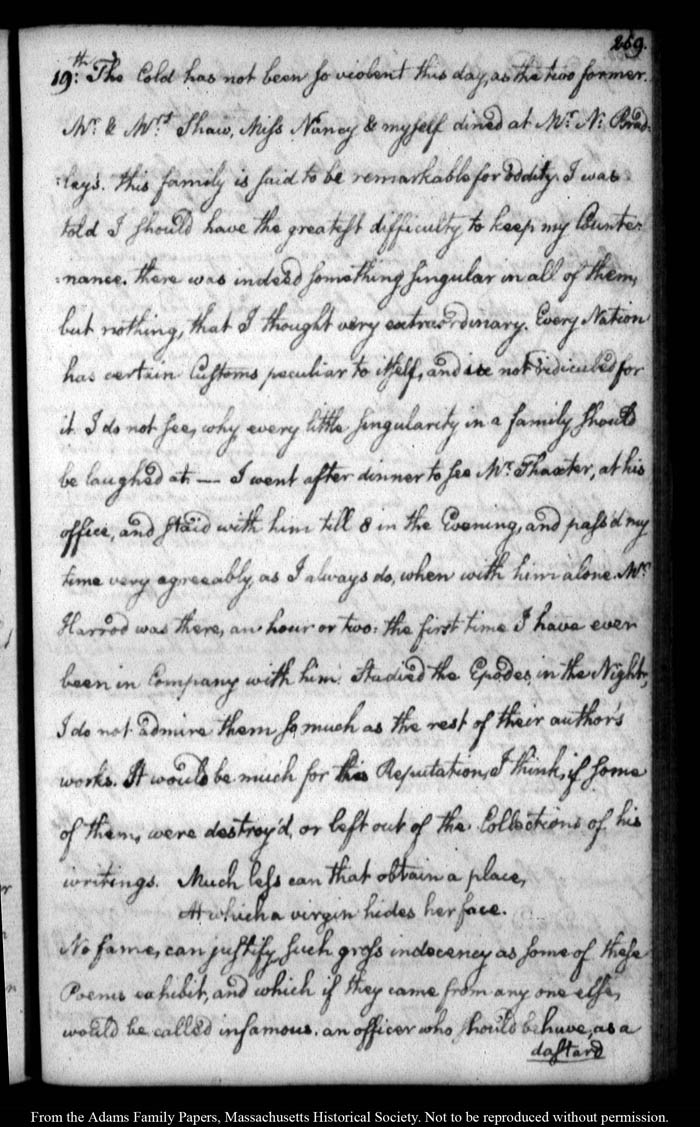 259.
19:th The Cold has not been so violent this day, as the two former.
Mr. & Mrs. Shaw, Miss Nancy & myself dined at Mr. N. Brad-
:ley's. this family is said to be remarkable for oddity. I was
told I should have the greatest difficulty to keep my Counte-
:nance. there was indeed something singular in all of them,
but nothing, that I thought very extraordinary. Every Nation
has certain Customs peculiar to itself, and is not ridiculed for
it. I do not see, why every little singularity in a family should
be laughed at. — I went after dinner to see Mr. Thaxter, at his
office, and staid with him till 8 in the Evening, and pass'd my
time very agreeably, as I always do, when with him alone. Mr.
Harrod was there, an hour or two: the first time I have ever
been in Company with him. Studied the Epodes, in the Night,
I do not admire them so much as the rest of their author's
works. It would be much for his Reputation, I think, if some
of them, were destroy'd, or left out of the Collections of his
writings. Much less can that obtain a place,
At which a virgin hides her face.
No fame, can justify such gross indecency as some of these
Poems exhibit, and which if they came from any one else,
would be called infamous. an officer who should behave, as a
dastard
From the Adams Family Papers, Massachusetts Historical Society. Not to be reproduced without permission.